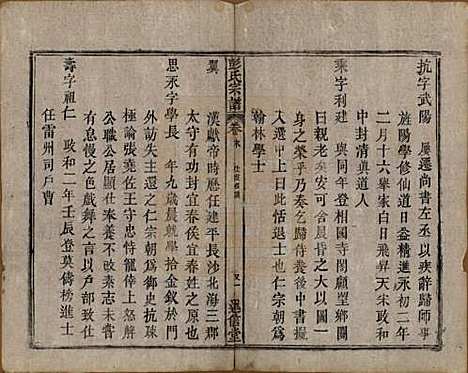 抗字武陽　屢遷尚書左丞以疾辭歸師事
旌陽學修仙道日益精進永初二年
二月十六舉家白日飛昇天宋政和
中封清真道人
乘字利建　與同年登相國寺閣顧望鄉關
曰親老矣安可舍晨昏之大以圖一
身之榮乎乃奏乞歸侍養後中書擬
入選甲上曰此恬退士也仁宗朝為
翰林學士
彭氏宗譜
卷末
又一
翼　漢獻帝時歷任建平長沙北海三郡
太守有功封宜春侯宜春姓之原也
思永字學長　年九歲晨就學拾金釵於門
外訪失主還之仁宗朝為御史抗疎
極論張堯佐王守忠恃寵倖上怒解
公職公居顯仕奉養不改秦志未嘗
有怠慢之色戲舞之言以戶部致仕
壽字祖仁　政和二年壬辰登莫儔榜進士
任雷州司戶曹